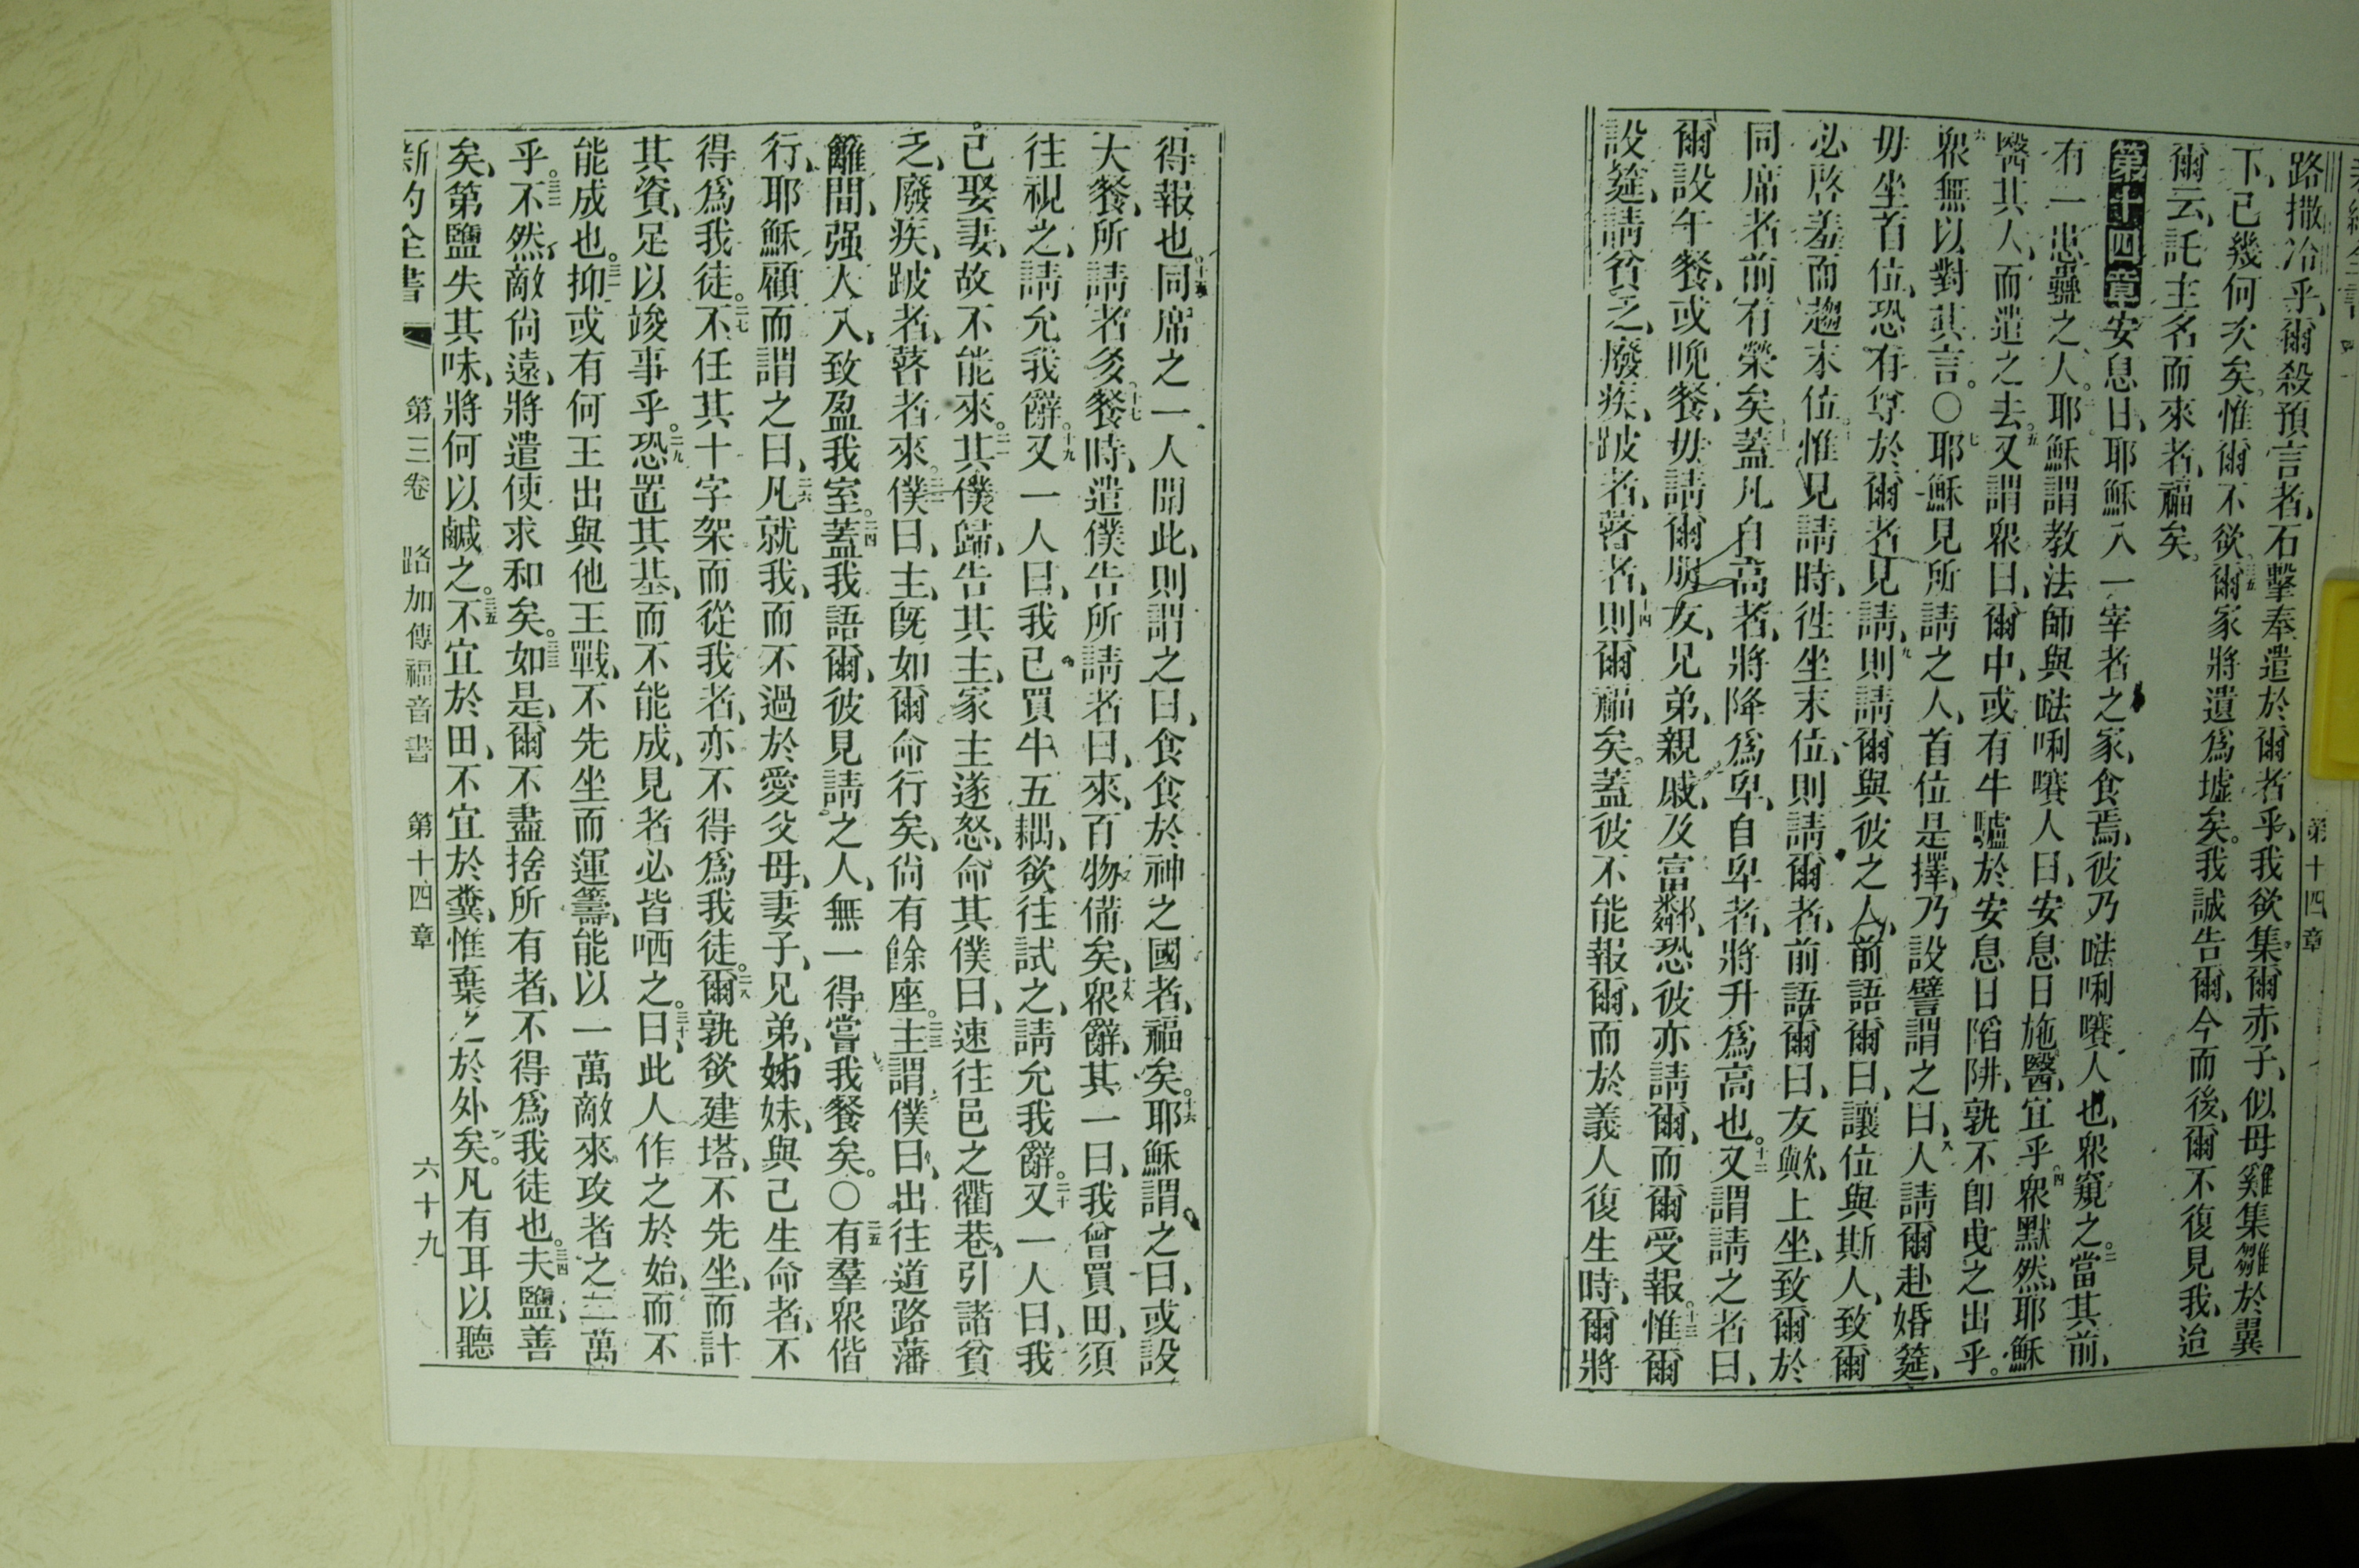 路撒冷乎、爾殺預言者、石擊奉遣於爾者乎、我欲集爾赤子、似母雞集雛於翼
下、已幾何次矣。惟爾不欲、三五爾家將遺爲墟矣。我誠告爾、今而後、爾不復見我、迨
爾云、託主名而來者、福矣。
第十四章安息日、耶穌入一宰者之家、食焉、彼乃𠵽唎㘔人也、衆窺之。二當其前、
有一患蠱之人。三耶穌謂教法師與𠵽唎㘔人曰、安息日施醫、宜乎。四衆默然、耶穌
醫其人、而遣之去。五又謂衆曰、爾中、或有牛驢於安息日陷阱、孰不卽曳之出乎。
六衆無以對其言。〇七耶穌見所請之人、首位是擇、乃設譬謂之曰、八人請爾赴婚筵、
毋坐首位、恐有尊於爾者見請、九則請爾與彼之人、前語爾曰、讓位與斯人、致爾
必啓羞而趨末位。十惟見請時、徃坐末位、則請爾者、前語爾曰、友歟、上坐、致爾於
同席者前有榮矣。十一蓋凡自高者、將降爲卑、自卑者、將升爲高也。十二又謂請之者曰、
爾設午餐、或晚餐、毋請爾朋友、兄弟、親戚、及富鄰、恐彼亦請爾、而爾受報。十三惟爾
設筵、請貧乏、廢疾、跛者、瞽者、十四則爾福矣。蓋彼不能報爾、而於義人復生時、爾將
第十四章
得報也。十五同席之一人聞此、則謂之曰、食食於神之國者、福矣。十六耶穌謂之曰、或設
大餐、所請者多。十七餐時、遣僕告所請者曰、來、百物備矣、十八衆辭、其一曰、我曾買田、須
往視之、請允我辭。十九又一人曰、我已買牛五耦、欲往試之、請允我辭。二十又一人曰、我
已娶妻、故不能來。二一其僕歸、告其主、家主遂怒、命其僕曰、速往邑之衢巷、引諸貧
乏、廢疾、跛者、瞽者來。二二僕曰、主、旣如爾命行矣、尙有餘座。二三主謂僕曰、出往道路藩
籬間、强人入、致盈我室。二四蓋我語爾、彼見請之人、無一得嘗我餐矣。〇二五有羣衆偕
行、耶穌顧而謂之曰、二六凡就我、而不過於愛父母、妻子、兄弟、姊妹、與己生命者、不
得爲我徒。二七不任其十字架而從我者、亦不得爲我徒。二八爾孰欲建塔、不先坐、而計
其資、足以竣事乎。二九恐置其基、而不能成、見者必皆哂之。三十曰、此人作之於始、而不
能成也。三一抑或有何王出與他王戰、不先坐而運籌、能以一萬敵來攻者之二萬
乎。三二不然、敵尙遠、將遣使求和矣。三三如是、爾不盡捨所有者、不得爲我徒也。三四夫鹽、善
矣、第鹽失其味、將何以鹹之。三五不宜於田、不宜於糞、惟棄之於外矣。凡有耳以聽
新約全書 第三卷 路加傳福音書 第十四章 六十九